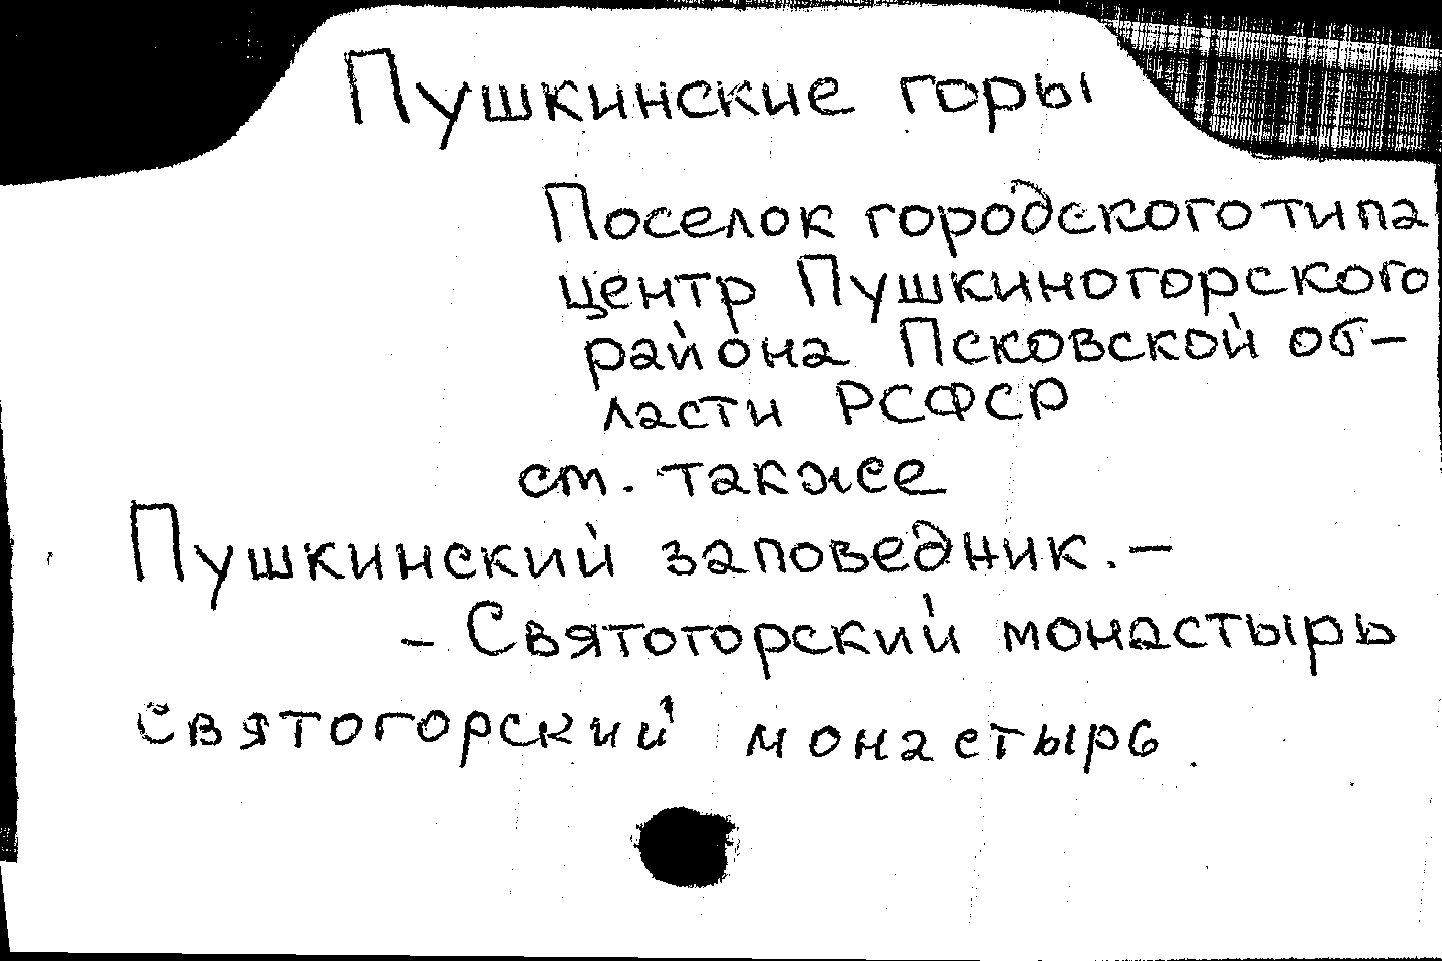 Пушкинские горы
Поселок городского типа
центр Пушкиногорского
района Псковской об-
ласти РСФСР
ст. также
Пушкинский заповедник. –
– Святогорский монастырь
Святогорский монастырь